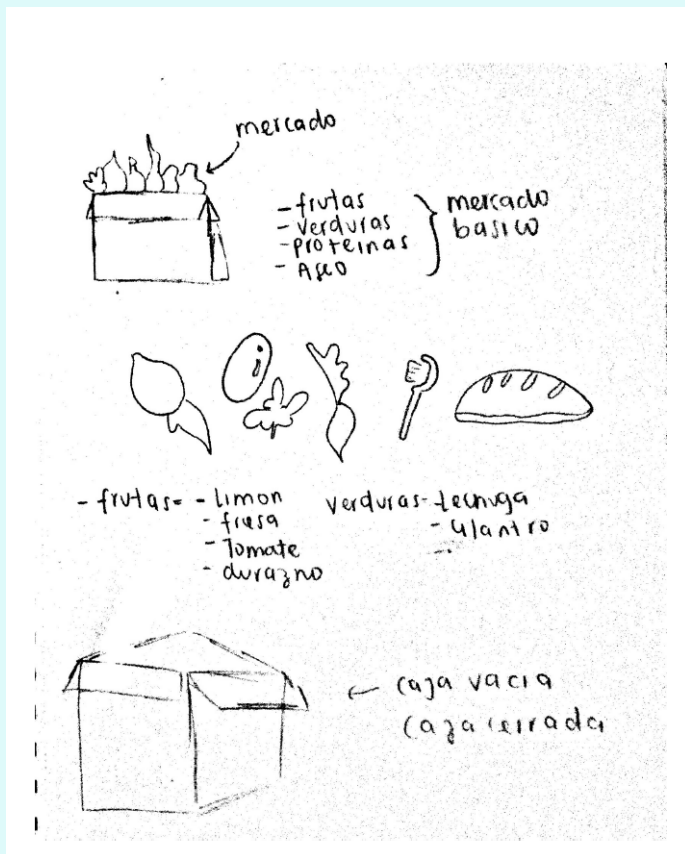 mercado
- frutas
- verduras
- proteinas
- Aseo
mercado
basico
- frutas= - limon
- fresa
- Tomate
- durazno
verduras- lechuga
- cilantro
caja vacia
caja cerrada